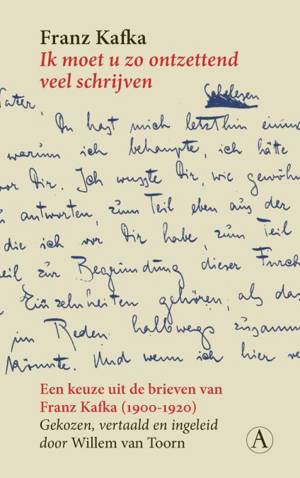 Franz Kafka
Ik moet u zo ontzettend
veel schrijven
Schelesen
Vater,
Du hast mich letzthin einma
warum ich behaupte, ich hätte
vor Dir. Ich wusste Dir, wie gewöhn
u antworten, zum Teil eben aus der
die ich vor Dir habe, zum Teil
eil zur Begründung dieser Furch
Einzelnheiten gehören, als das
im Reden halbwegs zusamm
könnte. Und wenn ich hier ve
Een keuze uit de brieven van
Franz Kafka (1900-1920)
Gekozen, vertaald en ingeleid
door Willem van Toorn
A